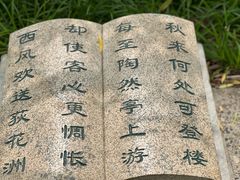 秋来何处可登楼
每至陶然亭上游
却使客心更惆怅
西风欢送荻花洲